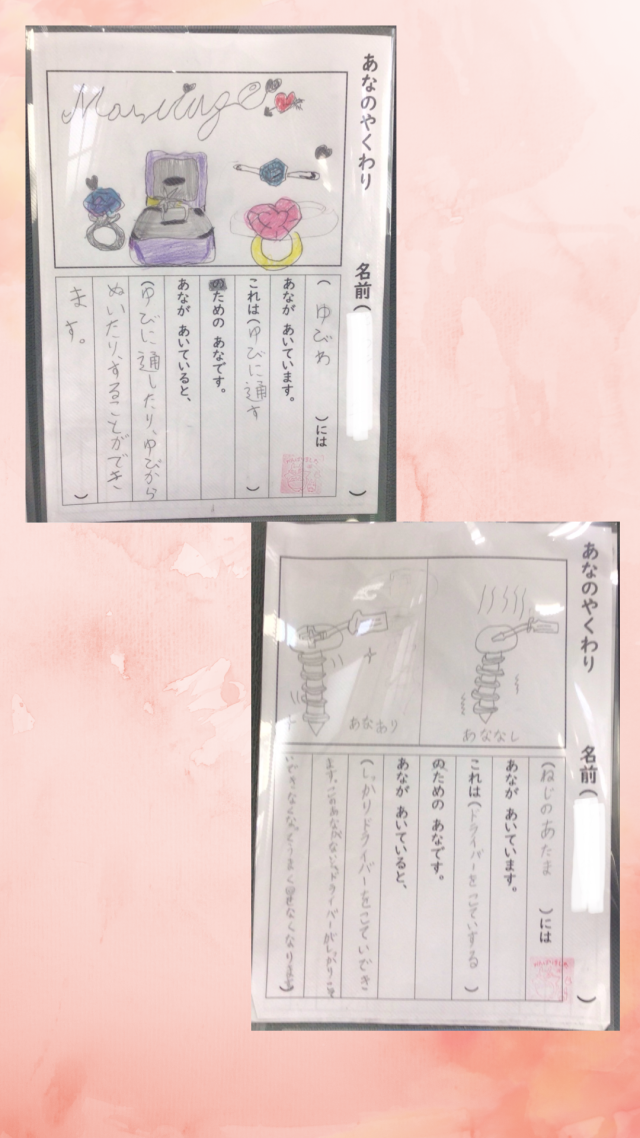 あなのやくわり
名前（　）
Marriage
（ゆびわ　）には
あなが あいています。
これは（ゆびに通す　）
のための あなです。
あなが あいていると、
（ゆびに通したり、ゆびから
ぬいたり、することができ
ます。　）
あなのやくわり
名前（　）
あななし
あなあり
（ねじのあたま　）には
あなが あいています。
これは（ドライバーをこていする　）
のための あなです。
あなが あいていると、
（しっかりドライバーをこていでき
ます。このあながないとドライバーがしっかりこて
いできなくなってうまく回せなくなります）